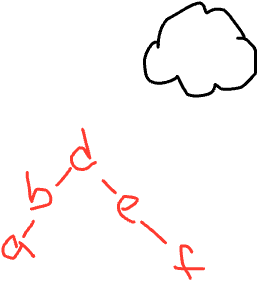 d
b e
a f